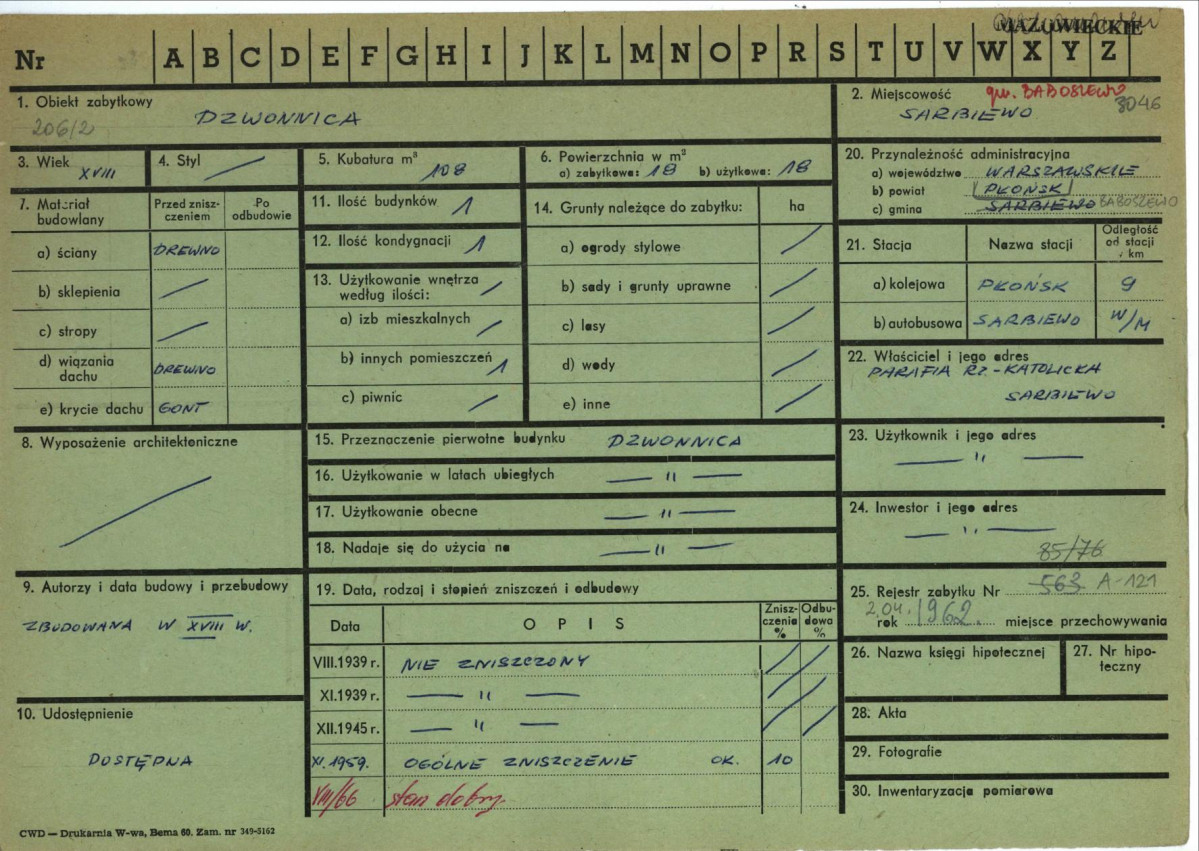 MAZOWIECKIE
Nr A B C D E F G H I J K L M N O P R S T U V W X Y Z
1. Obiekt zabytkowy
206/2
DZWONNICA
2. Miejscowość gm. BABOSZEWO
SARBIEWO 3046
3. Wiek XVIII
4. Styl
5. Kubatura m³
108
6. Powierzchnia w m²
a) zabytkowa: 18 b) użytkowa: 18
20. Przynależność administracyjna
a) województwo WARSZAWSKIE
b) powiat PŁOŃSK
c) gmina SARBIEWO BABOSZEWO
7. Materiał budowlany
Przed znisz-
czeniem
Po
odbudowie
a) ściany DREWNO
b) sklepienia
c) stropy
d) wiązania
dachu DREWNO
e) krycie dachu GONT
11. Ilość budynków 1
12. Ilość kondygnacji 1
13. Użytkowanie wnętrza
według ilości:
a) izb mieszkalnych
b) innych pomieszczeń 1
c) piwnic
14. Grunty należące do zabytku: ha
a) ogrody stylowe
b) sady i grunty uprawne
c) lasy
d) wody
e) inne
21. Stacja Nazwa stacji
Odległość
od stacji
km
a) kolejowa PŁOŃSK 9
b) autobusowa SARBIEWO W/M
22. Właściciel i jego adres
PARAFIA RZ.-KATOLICKA
SARBIEWO
8. Wyposażenie architektoniczne
15. Przeznaczenie pierwotne budynku DZWONNICA
16. Użytkowanie w latach ubiegłych — " —
17. Użytkowanie obecne — " —
18. Nadaje się do użycia na — " —
23. Użytkownik i jego adres
— " —
24. Inwestor i jego adres
— " —
85/76
9. Autorzy i data budowy i przebudowy
ZBUDOWANA W XVIII W.
19. Data, rodzaj i stopień zniszczeń i odbudowy
Data OPIS
Znisz-
czenia
%
Odbu-
dowa
%
VIII.1939 r. NIE ZNISZCZONY
XI.1939 r. — " —
XII.1945 r. — " —
XI.1959. OGÓLNE ZNISZCZENIE OK. 10
VIII/66 stan dobry.
25. Rejestr zabytku Nr 563 A-121
2.04. rok 1962. miejsce przechowywania
26. Nazwa księgi hipotecznej
27. Nr hipo-
teczny
10. Udostępnienie
DOSTĘPNA
28. Akta
29. Fotografie
30. Inwentaryzacja pomiarowa
CWD — Drukarnia W-wa, Bema 60. Zam. nr 349-5162